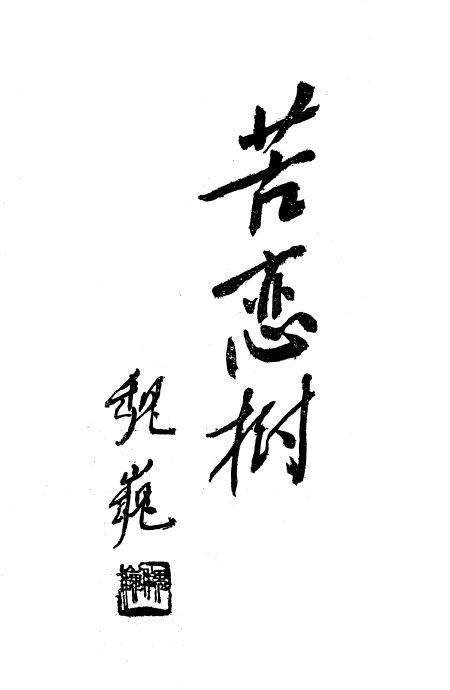 苦恋树
魏巍